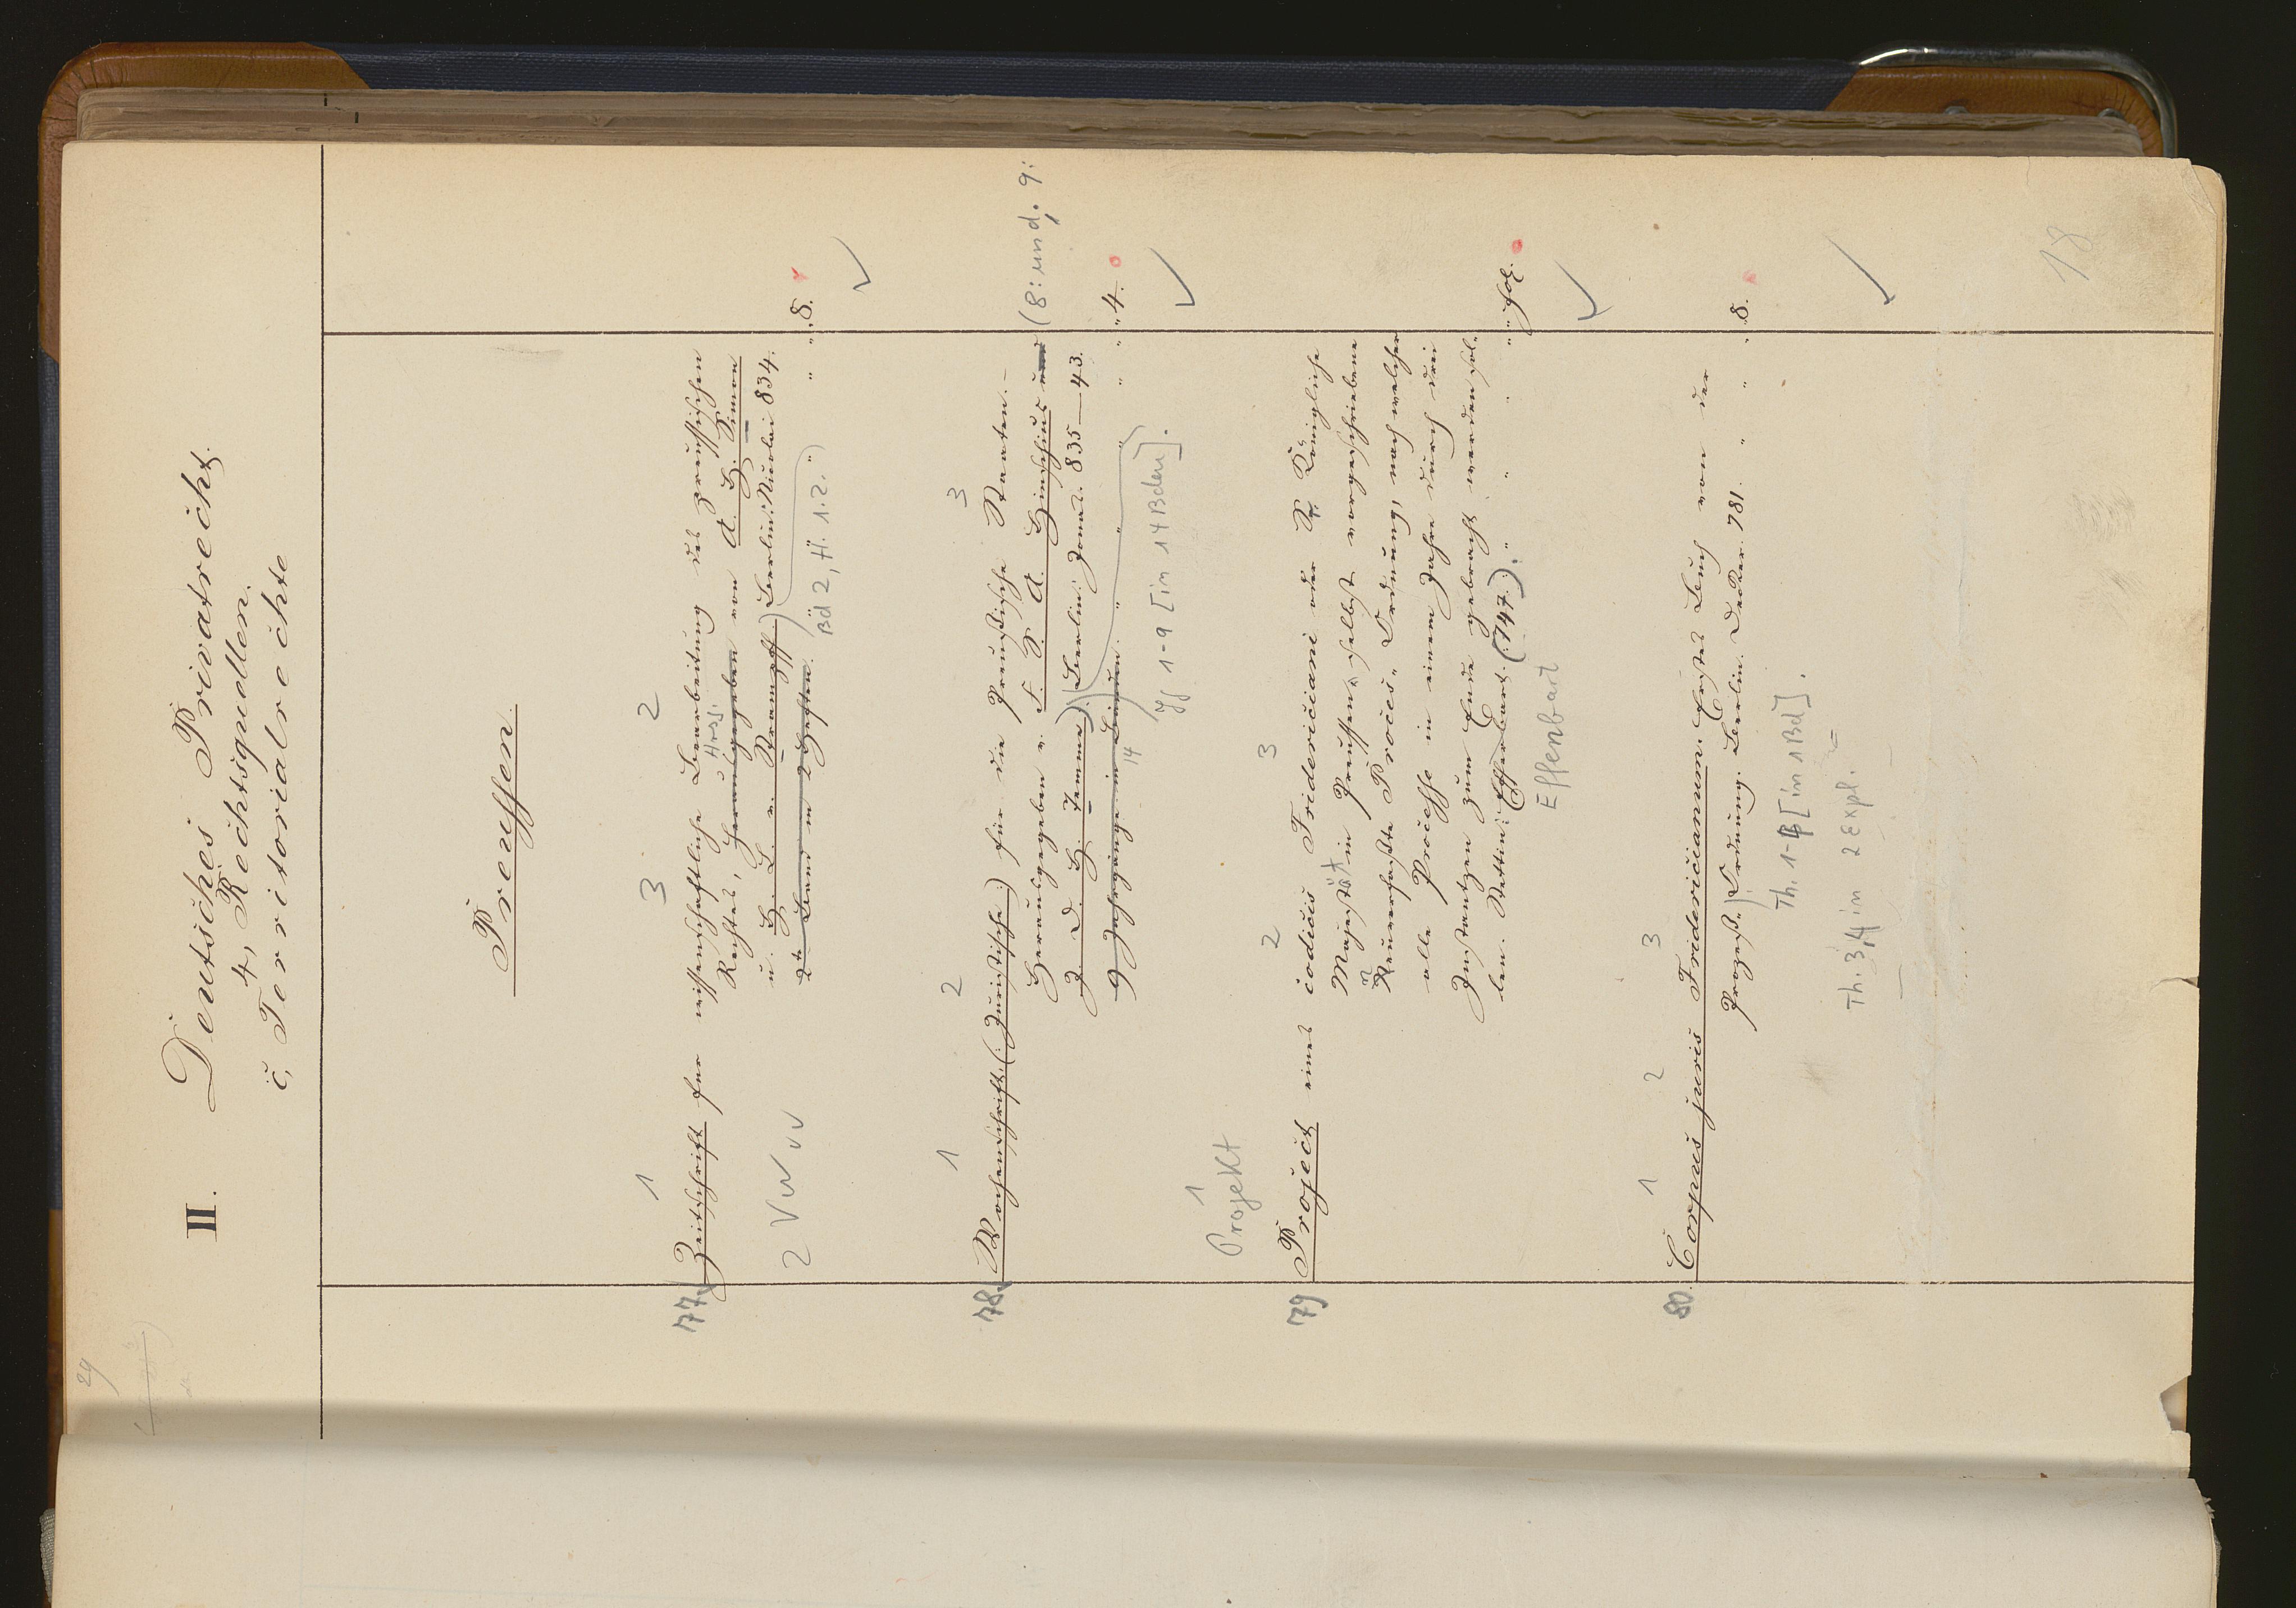 29
II. Deutsches Privatrecht.
4, Rechtsquellen.
c, Territorialrechte
Preussen.
1 3 2
77. Zeitschrift für wissenschaftliche Bearbeitung des preussischen
Rechtes, Herausgegeben von A. H. Simon
Hrsg.
u. H. L. v. Strampff.) Berlin: Nicolai 834.
2ter Band in 2 Heften. " " " 8.
Bd 2, H. 1.2.
2 V
1 2 3
78. Wochenschrift (:Juristische:) für die Preußische Staaten. –
Herausgegeben v. F. S. A. Hinschius und (8: und, 9:
J. D. H. Temme.) Berlin: Jonas. 835–43.
9 Jahrgänge in Bänden. " " " " 4.
14
Jg 1-9 [in 14 Bden].
1
Projekt 2 3
79 Project eines codicis Fridericiani oder Sr Königliche
Majestät in Preussen selbst vorgeschriebene
Neuverfaßte Process-Ordnung, nach welcher
alle Processe in einem Jahre durch drei
Instantzen zum Ende gebracht werden sol-
len. Stettin: Effenbart. (747.). " " " " fol.
Effenbart
1 2 3
80. Corpus juris Fridericianum. Erstes Buch von der
Prozeß-Ordnung. Berlin. Decker. 781. " " " 8.
Th. 1-4 [in 1 Bd].
Th. 3,4 in 2 Expl.
18